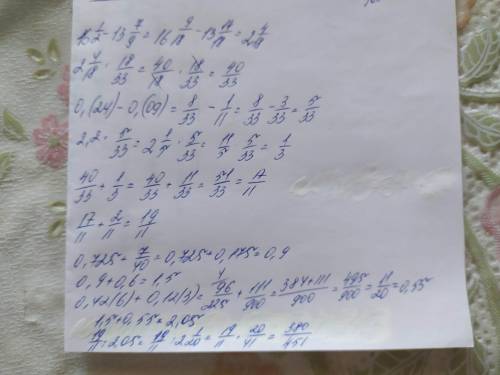 16 1/2 - 13 7/9 = 16 9/18 - 13 14/18 = 2 4/18
2 4/18 · 18/33 = 40/18 · 18/33 = 40/33
0,(24) - 0,(09) = 8/33 - 1/11 = 8/33 - 3/33 = 5/33
2,2 · 5/33 = 2 1/5 · 5/33 = 11/5 · 5/33 = 1/3
40/33 + 1/3 = 40/33 + 11/33 = 51/33 = 17/11
17/11 + 2/11 = 19/11
0,725 + 7/40 = 0,725 + 0,175 = 0,9
0,9 + 0,6 = 1,5
0,42(6) + 0,12(3) = 96/225 + 111/900 = 384+111/900 = 495/900 = 11/20 = 0,55
1,5 + 0,55 = 2,05
19/11 : 2,05 = 19/11 : 2 1/20 = 19/11 · 20/41 = 380/451